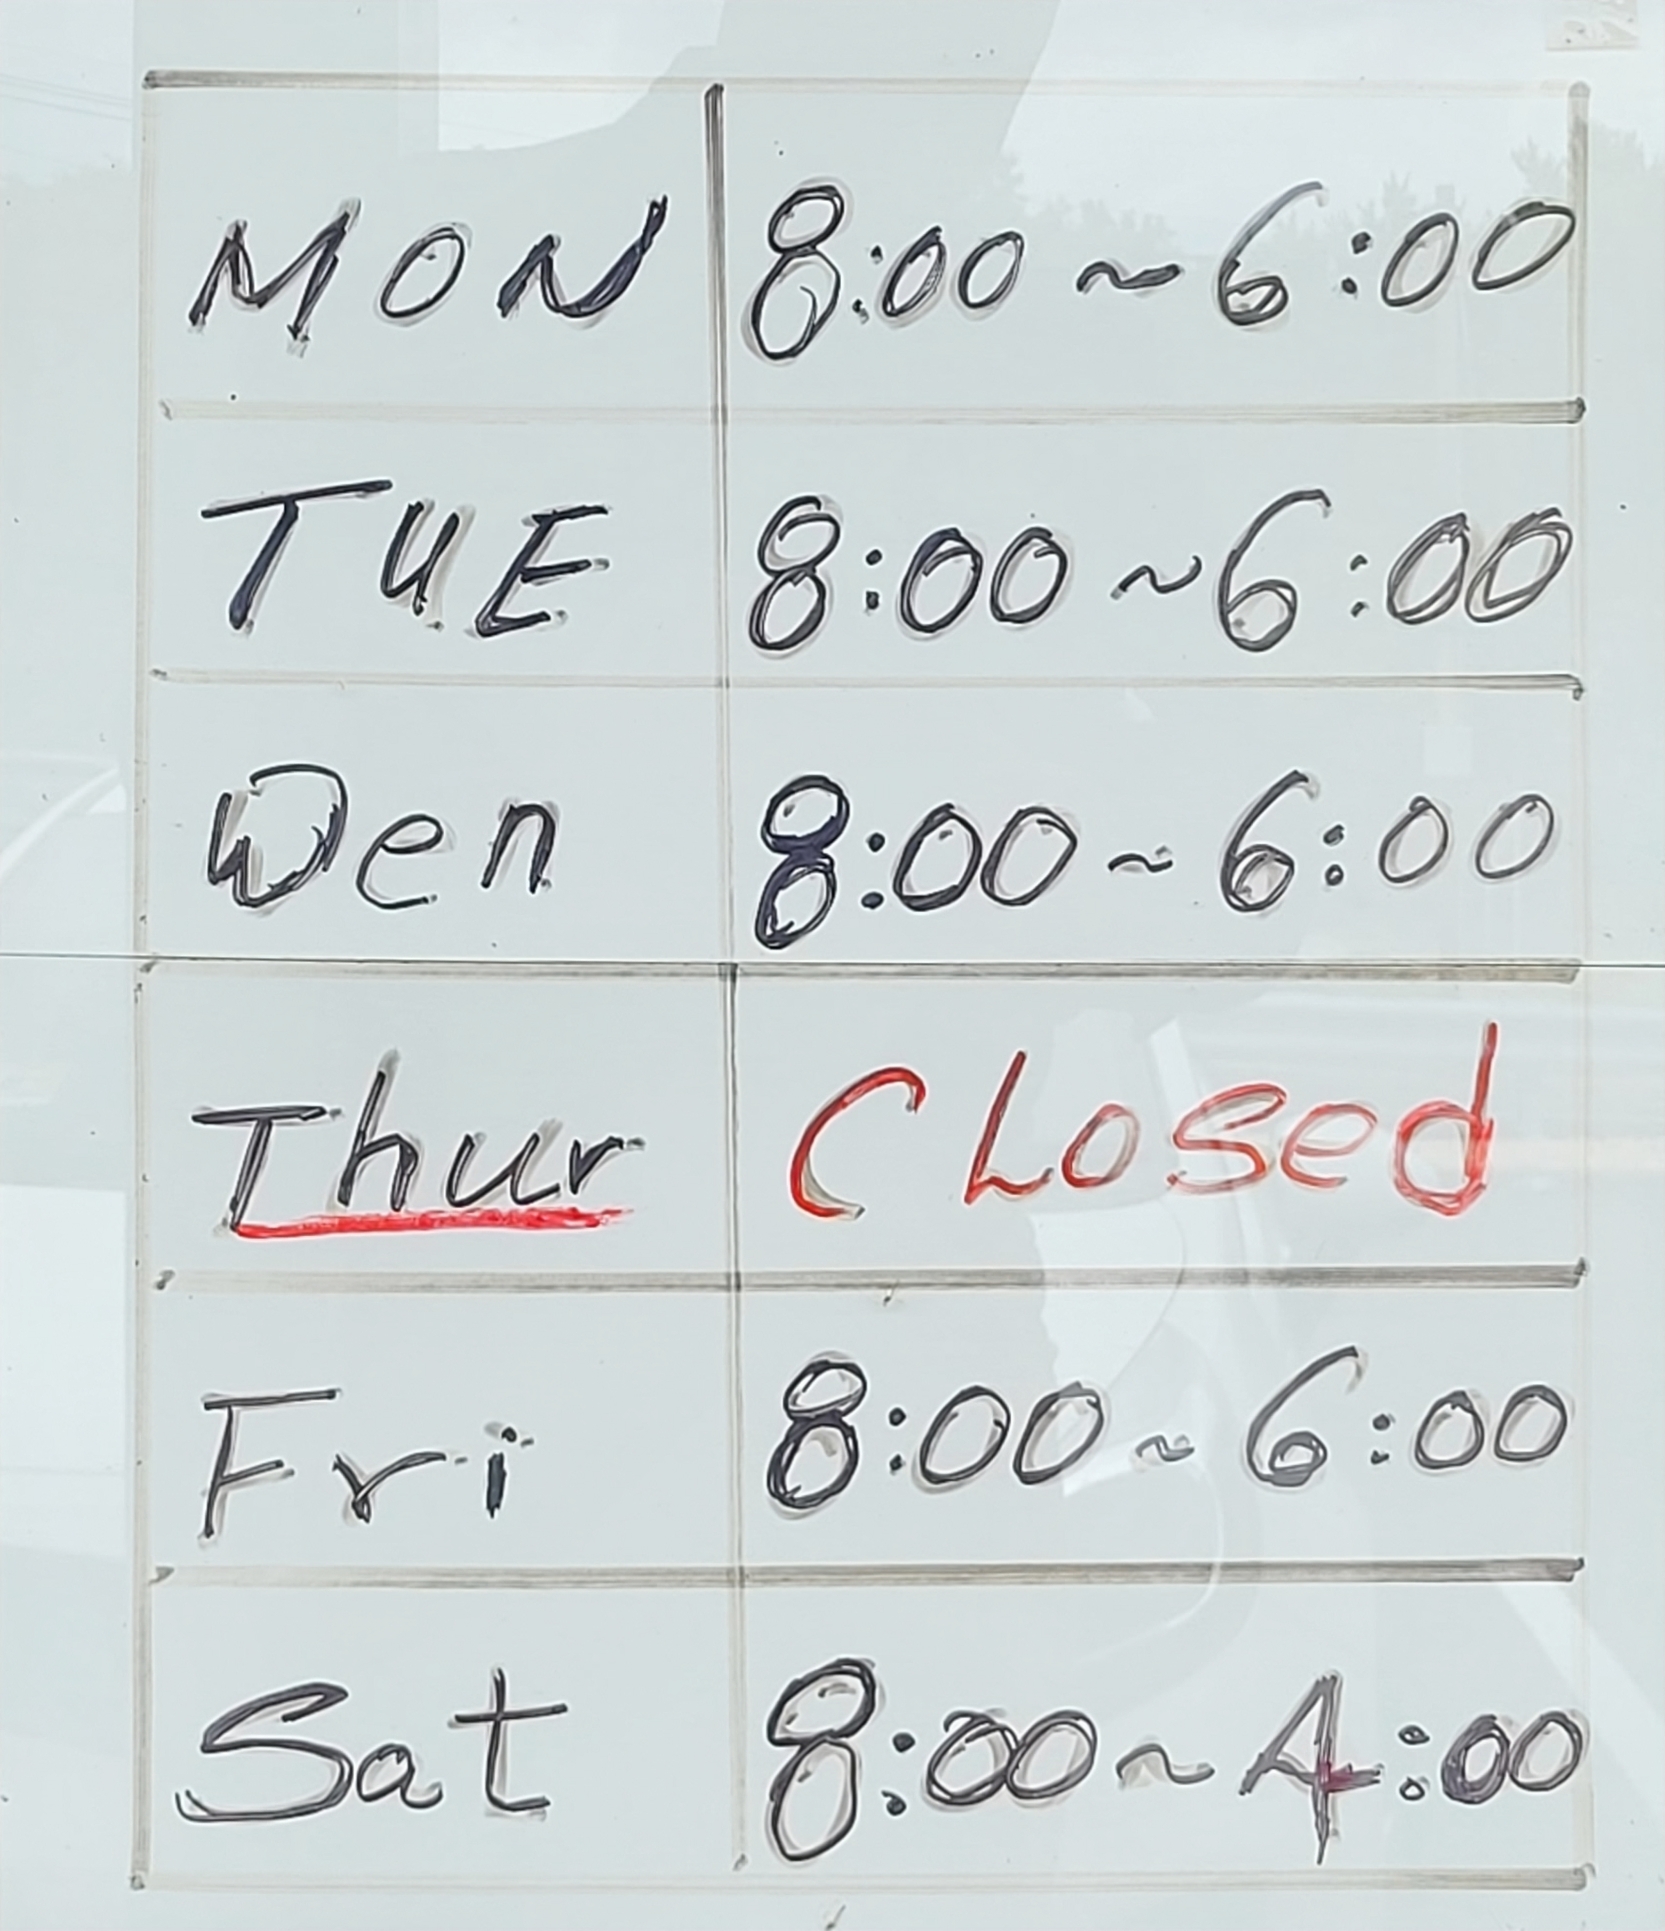 MON 8:00 ~ 6:00
TUE 8:00 ~ 6:00
Wen 8:00 ~ 6:00
Thur CLosed
Fri 8:00 ~ 6:00
Sat 8:00 ~ 4:00